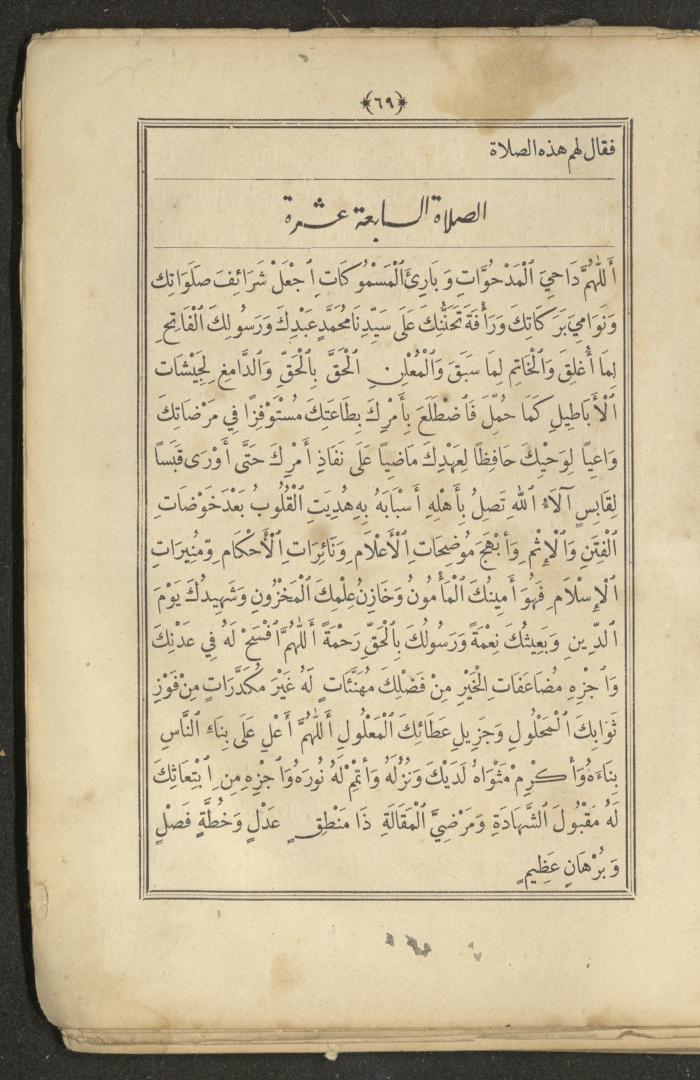 ﴿٦٩﴾
فقال لهم هذه الصلاة
الصلاة السابعة عشرة
أَللّٰهُمَّ دَاحِيَ ٱلْمَدْحُوَّاتِ وَبَارِئَ ٱلْمَسْمُوكَاتِ ٱجْعَلْ شَرَائِفَ صَلَوَاتِكَ
وَنَوَامِيَ بَرَكَاتِكَ وَرَأْفَةَ تَحَنُّنِكَ عَلَى سَيِّدِنَا مُحَمَّدٍ عَبْدِكَ وَرَسُولِكَ ٱلْفَاتِحِ
لِمَا أُغْلِقَ وَٱلْخَاتِمِ لِمَا سَبَقَ وَٱلْمُعْلِنِ ٱلْحَقَّ بِٱلْحَقِّ وَٱلدَّامِغِ لِجَيْشَاتِ
ٱلْأَبَاطِيلِ كَمَا حُمِّلَ فَٱضْطَلَعَ بِأَمْرِكَ بِطَاعَتِكَ مُسْتَوْفِزًا فِي مَرْضَاتِكَ
وَاعِياً لِوَحْيِكَ حَافِظاً لِعَهْدِكَ مَاضِياً عَلَى نَفَاذِ أَمْرِكَ حَتَّى أَوْرَى قَبَساً
لِقَابِسٍ آلَاءُ ٱللهِ تَصِلُ بِأَهْلِهِ أَسْبَابَهُ بِهِ هُدِيَتِ ٱلْقُلُوبُ بَعْدَ خَوْضَاتِ
ٱلْفِتَنِ وَٱلْإِثْمِ وَأَبْهَجَ مُوضِحَاتِ ٱلْأَعْلَامِ وَنَائِرَاتِ ٱلْأَحْكَامِ وَمُنِيرَاتِ
ٱلْإِسْلَامِ فَهُوَ أَمِينُكَ ٱلْمَأْمُونُ وَخَازِنُ عِلْمِكَ ٱلْمَخْزُونِ وَشَهِيدُكَ يَوْمَ
ٱلدِّينِ وَبَعِيثُكَ نِعْمَةً وَرَسُولُكَ بِٱلْحَقِّ رَحْمَةً أَللّٰهُمَّ ٱفْسَحْ لَهُ فِي عَدْنِكَ
وَٱجْزِهِ مُضَاعَفَاتِ ٱلْخَيْرِ مِنْ فَضْلِكَ مُهَنَّئَاتٍ لَهُ غَيْرَ مُكَدَّرَاتٍ مِنْ فَوْزِ
ثَوَابِكَ ٱلْمَحْلُولِ وَجَزِيلِ عَطَائِكَ ٱلْمَعْلُولِ أَللّٰهُمَّ أَعْلِ عَلَى بِنَاءِ ٱلنَّاسِ
بِنَاءَهُ وَأَكْرِمْ مَثْوَاهُ لَدَيْكَ وَنُزُلَهُ وَأَتْمِمْ لَهُ نُورَهُ وَٱجْزِهِ مِنِ ٱبْتِعَاثِكَ
لَهُ مَقْبُولَ ٱلشَّهَادَةِ وَمَرْضِيَّ ٱلْمَقَالَةِ ذَا مَنْطِقٍ عَدْلٍ وَخُطَّةٍ فَصْلٍ
وَبُرْهَانٍ عَظِيمٍ